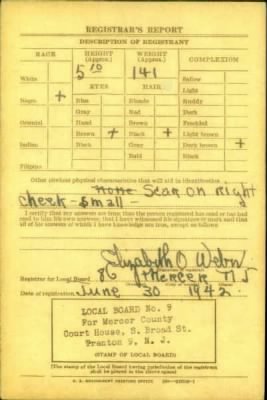 REGISTRAR'S REPORT
DESCRIPTION OF REGISTRANT
RACE HEIGHT (Approx.) WEIGHT (Approx.) COMPLEXION
White 5 10 141 Sallow
EYES HAIR Light
Negro + Blue Blonde Ruddy
Gray Red Dark
Oriental Hazel Brown Freckled
Brown + Black + Light brown
Indian Black Gray Dark brown +
Bald Black
Filipino
Other obvious physical characteristics that will aid in identification
none Scar on Right
cheek - small -
I certify that my answers are true; that the person registered has read or has had
read to him his own answers; that I have witnessed his signature or mark and that
all of his answers of which I have knowledge are true, except as follows:
Elizabeth O
Registrar for Local Board Mercer N J
Date of registration June 30 1942
LOCAL BOARD No. 9
For Mercer County
Court House, S. Broad St.
Trenton 9, N. J.
(STAMP OF LOCAL BOARD)
(The stamp of the Local Board having jurisdiction of the registrant
shall be placed in the above space)
U. S. GOVERNMENT PRINTING OFFICE